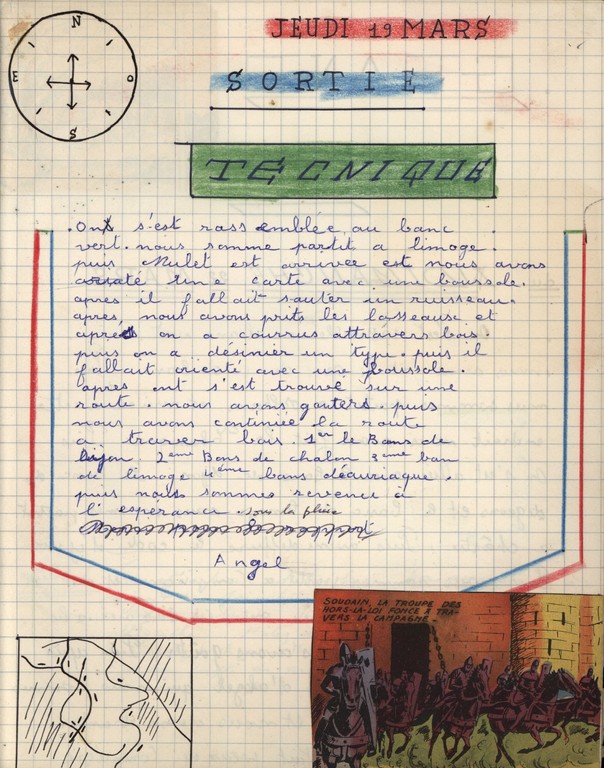 N
E
O
S
JEUDI 19 MARS
SORTIE
TECNIQUE
. On s'est rassemblée au banc .
vert. nous somme partit a limoge.
puis Mulet est arrivee est nous avons
une carte avec une boussole.
apres il fallait sauter un ruisseau.
apres, nous avons prits les lasseaux et
apres on a courrus attravers bois.
puis on a désinier un type. puis il
fallait orienté avec une boussole.
apres ont s'est trouve sur une
route. nous avons gouters. puis
nous avons continiée la route
a traver bois. 1er le Bans de
Dijon. 2ème Bans de chalon 3ème ban
de limoge 4ème bans déauriaque.
puis nous sommes revenu à
l'espérance. sous la pluie
Angel
SOUDAIN, LA TROUPE DES
HORS-LA-LOI FONCE À TRA-
VERS LA CAMPAGNE